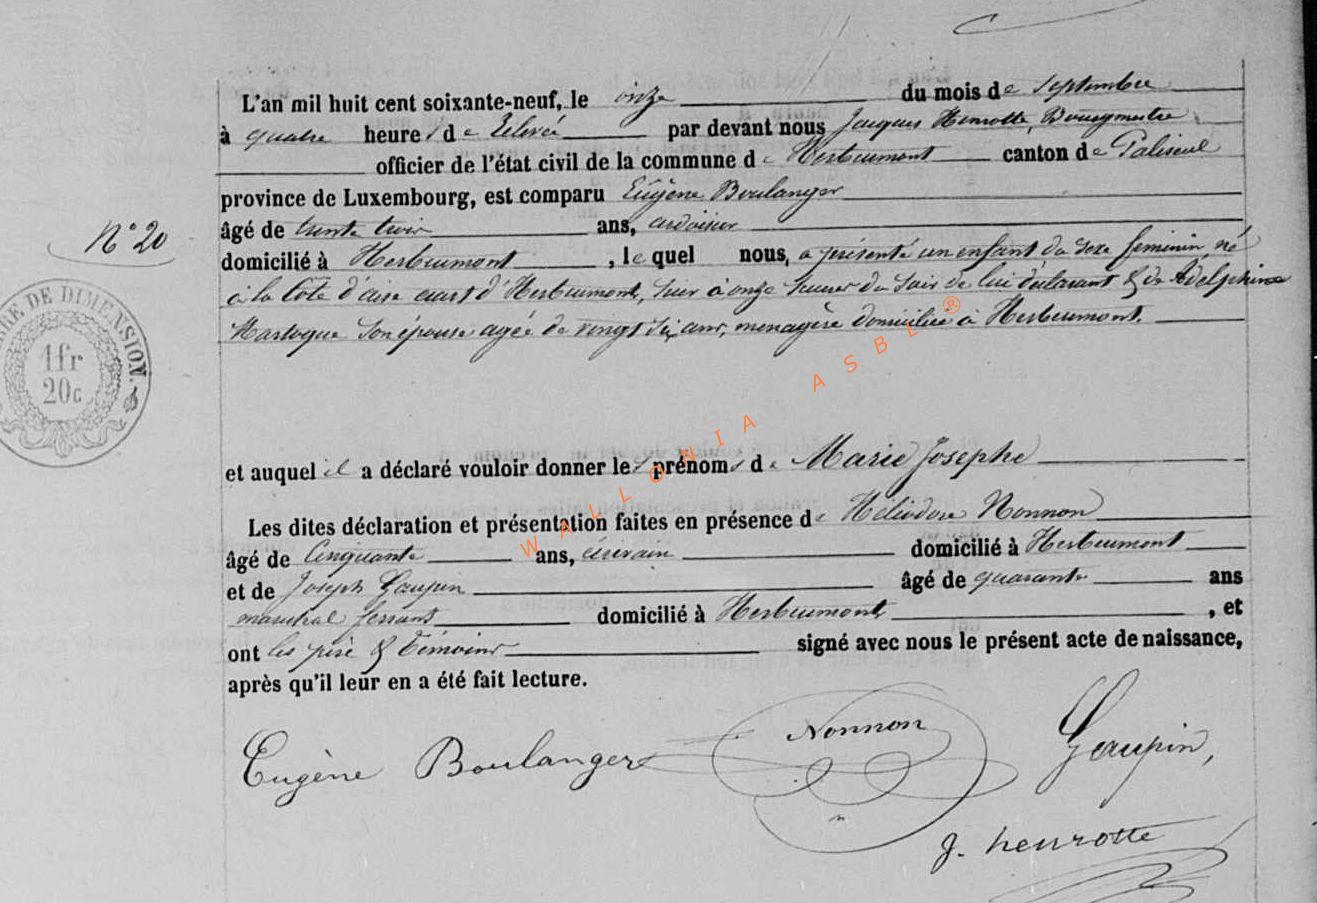 L'an mil huit cent soixante-neuf, le onze du mois de Septembre
à quatre heures de relevée par devant nous Jacques Henrotte, Bourgmestre
officier de l'état civil de la commune de Herbeumont canton de Paliseul
province de Luxembourg, est comparu Eugène Boulanger
âgé de trente trois ans, ardoisier
domicilié à Herbeumont, lequel nous, a présenté un enfant du sexe feminin, né
N° 20
à la Côte d' d'Herbeumont, hier à onze heures du soir de lui déclarant & de Adelphine
son épouse agée de vingt six ans, menagère domiciliée à Herbeumont.
RE DE DIMENSION.
1 fr
20 c
et auquel il a déclaré vouloir donner les prénoms de Marie Josephe
Les dites déclaration et présentation faites en présence de Héliodore Nonnon
âgé de Cinquante ans, écrivain domicilié à Herbeumont
et de Joseph Gaupin âgé de quarante ans
maréchal ferrant domicilié à Herbeumont, et
ont les père & témoins signé avec nous le présent acte de naissance,
après qu'il leur en a été fait lecture.
Eugène Boulanger Nonnon Gaupin,
J. henrotte
WALLONIA ASBL ®